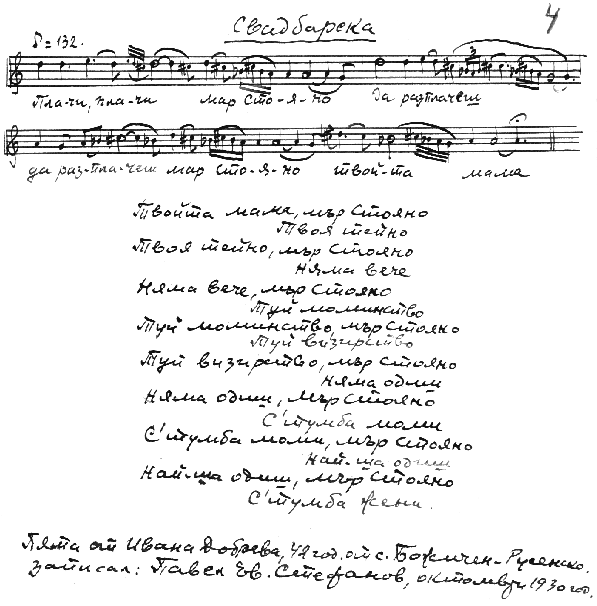 Свадбарска
4
♪=132.
Пла-чи, пла-чи мар Сто-я-но да разплачеш
да раз-пла-чеш мар Сто-я-но твой-та мама
Твойта мама, мър Стояно
Твоя тейно
Твоя тейно, мър Стояно
Няма вече
Няма вече, мър Стояно
Туй моминство
Туй моминство, мър Стояно
Туй визирство
Туй визирство, мър Стояно
Няма одиш
Няма одиш, мър Стояно
С'тумба моми
С'тумба моми, мър Стояно
Най-ша одиш
Най-ша одиш, мър Стояно
С'тумба жени.
Пята от Ивана Добрева, 42 год. от с. Божичен-Русенско.
Записал: Павел Ев. Стефанов, октомври 1930 год.